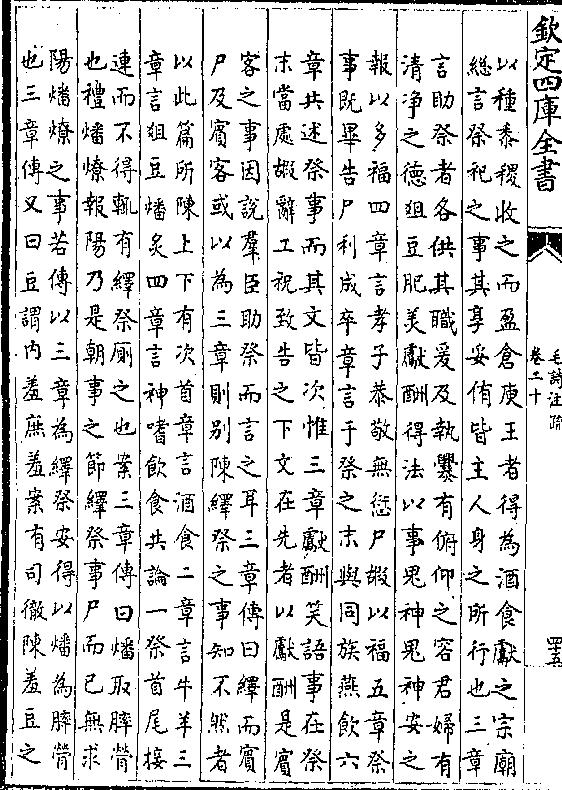 欽定四庫全書
毛詩注疏
卷二十
四五
以種黍稷收之而盈倉庾王者得為酒食獻之宗廟
總言祭祀之事其享妥侑皆主人身之所行也三章
言助祭者各供其職爰及執爨有俯仰之容君婦有
清净之德俎豆肥美獻酬得法以事鬼神鬼神安之
報以多福四章言孝子恭敬無愆尸嘏以福五章祭
事既畢告尸利成卒章言于祭之末與同族燕飲六
章共述祭事而其文皆次惟三章獻酬笑語事在祭
末當處嘏辭工祝致告之下文在先者以獻酬是賓
客之事因說羣臣助祭而言之耳三章傳曰繹而賓
尸及賓客或以為三章則别陳繹祭之事知不然者
以此篇所陳上下有次首章言酒食二章言牛羊三
章言俎豆燔炙四章言神嗜飲食共論一祭首尾接
連而不得輒有繹祭厠之也案三章傳曰燔取膟膋
也禮燔燎報陽乃是朝事之節繹祭事尸而已無求
陽燔燎之事若傳以三章為繹祭安得以燔為膟膋
也三章傳又曰豆謂内羞庶羞案有司徹陳羞豆之